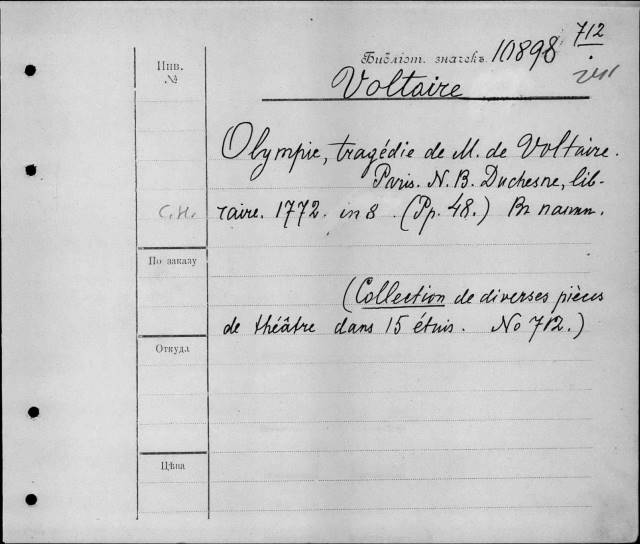 712
Библіот. значекъ. 10898
Инв.
№
Voltaire
Olympie, tragédie de M. de Voltaire.
Paris. N. B. Duchesne, lib-
С.Н.
raire. 1772. in 8. (Pp. 48.) Въ папкѣ.
По заказу
(Collection de diverses pièces
de théâtre dans 15 étuis. No 712.)
Откуда
Цѣна